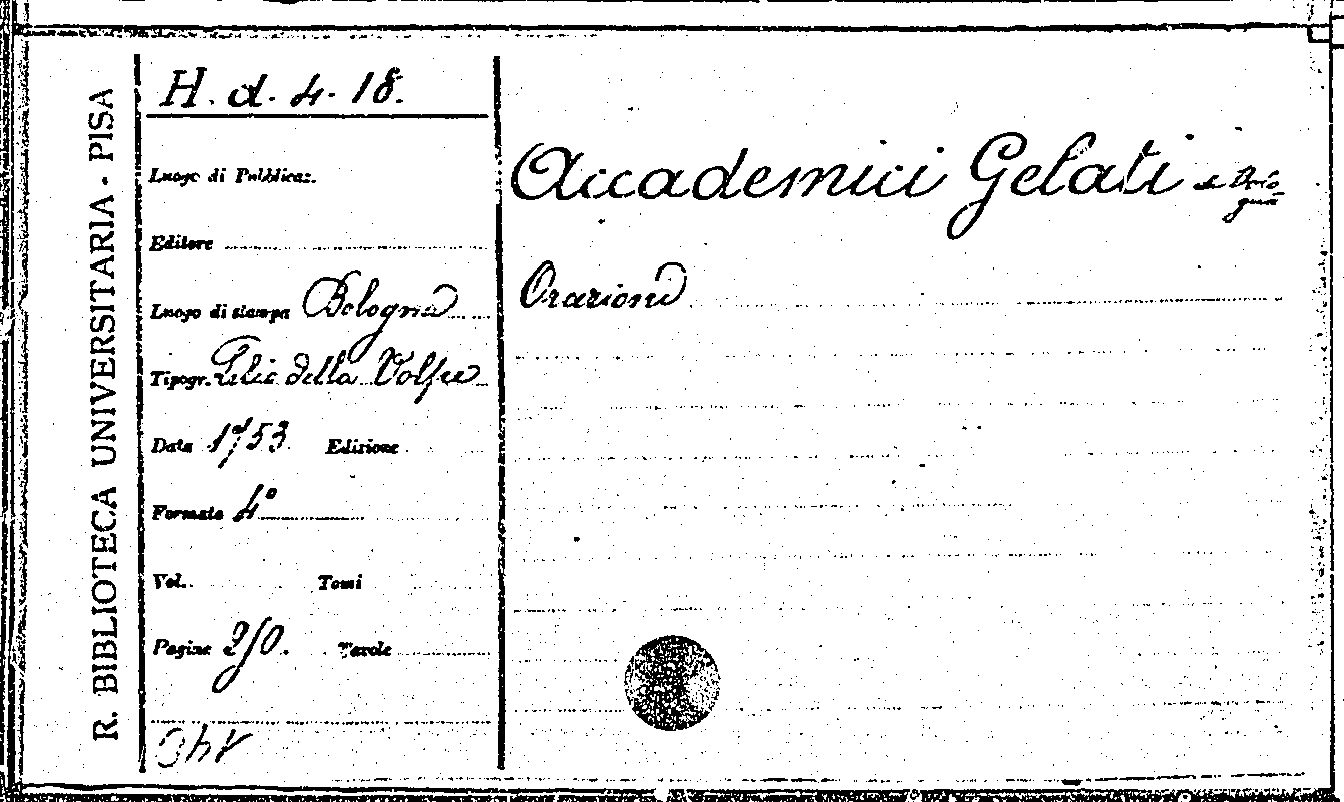 R. BIBLIOTECA UNIVERSITARIA - PISA
H. d. 4. 18.
Luogo di Pubblicaz.
Editore
Luogo di stampa Bologna
Tipogr. Lelio della Volpe
Data 1753 Edizione
Formato 4°
Vol. Tomi
Pagine 250. Tavole
Accademici Gelati di Bolo-
gna
Orazioni